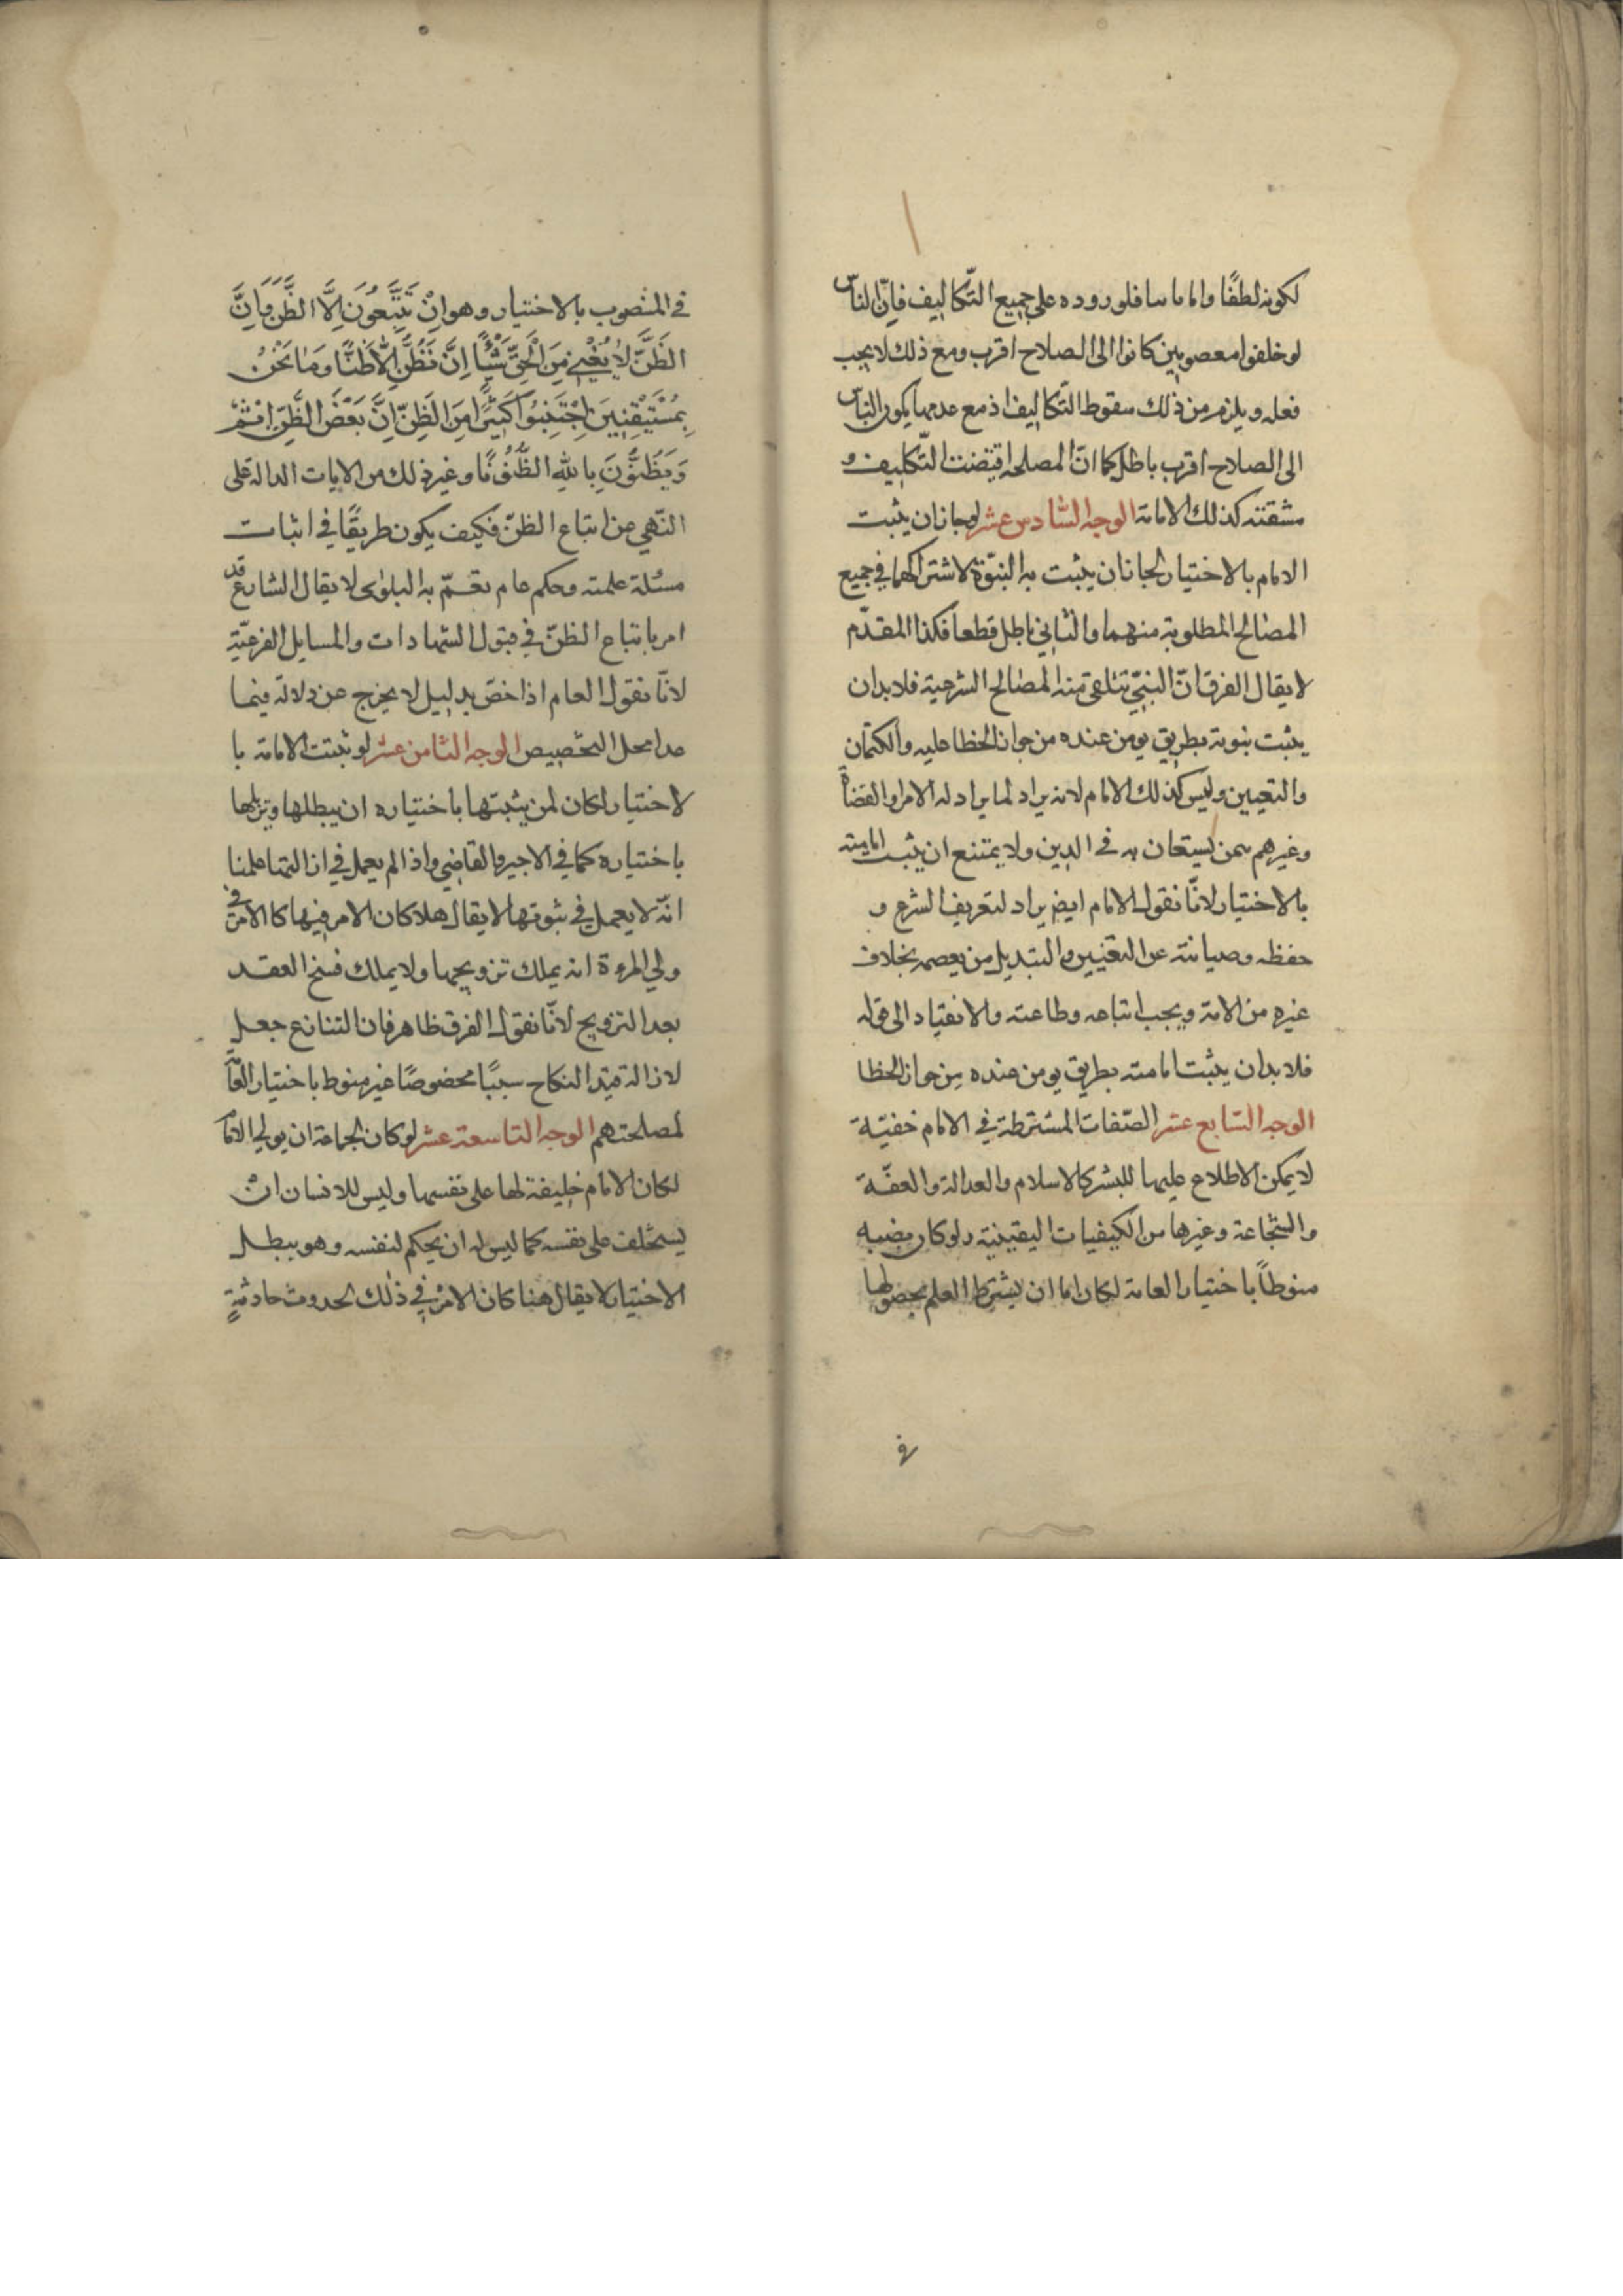 لكونه لطفًا واما ما سا فلوروده على جميع التّكاليف فانّ الناس
لو خلقوا معصومين كانوا الى الصلاح اقرب ومع ذلك لا يجب
فعله ويلزم من ذلك سقوط التّكاليف اذ مع عدمها يكون النّاس
الى الصلاح اقرب باطل كما انّ المصلحة اقتضت التّكليف و
مشقته كذلك الامامة الوجه السّادس عشر لو جاز ان يثبت
الامام بالاختيار لجاز ان يثبت به النبّوة لاشتراكهما في جميع
المصالح المطلوبة منهما والثاني باطل قطعا فكذا المقدّم
لا يقال الفرق انّ النبيّ تتلقى منه المصالح الشرعية فلا بد ان
يثبت بنوته بطريق يومن عنده من جواز الخطا عليه والكتمان
والتعيين وليس كذلك الامام لانه يراد لما يراد له الامرا والقضاة
وغيرهم ممن يستعان به في الدين ولا يمتنع ان يثبت امامته
بالاختيار لانّا نقول الامام ايض يراد لتعريف الشرع و
حفظه وصيانته عن التغيير والتبديل من يعصمه بخلاف
غيره من الامة ويجب اتباعه وطاعته والانقياد الى قوله
فلا بد ان يثبت امامته بطريق يومن عنده من جواز الخطا
الوجه السّابع عشر الصّفات المشترطة في الامام خفيّة
لا يمكن الاطلاع عليها للبشر كالاسلام والعدالة والعفّة
والشّجاعة وغيرها من الكيفيات اليقينية ولو كان نصبه
منوطاً باختيار العامة لكان اما ان يشترط العلم بحصولها
في
في المنصوب بالاختيار وهو اِنْ يَتَّبِعُونَ اِلَّا الظَّنَّ وَاِنَّ
الظَّنَّ لَا يُغْنِي مِنَ الْحَقِّ شَيْئًا اِنَّ نَظُنَّ اِلَّا ظَنًّا وَمَا نَحْنُ
بِمُسْتَيْقِنِينَ اِجْتَنِبُوا كَثِيرًا مِنَ الظَّنِّ اِنَّ بَعْضَ الظَّنِّ اِثْمٌ
وَيَظُنُّونَ بِاللّٰهِ الظُّنُونَا وغير ذلك من الايات الدالة على
النّهي عن اتباع الظنّ فكيف يكون طريقًا في اثبات
مسئلة علمية وحكم عام تعمّ به البلوى لا يقال الشارع قد
امر باتباع الظنّ في قبول الشهادات والمسايل الفرعيّة
لانّا نقول العام اذا خصّ بدليل لا يخرج عن دلالته فيما
عدا محل التخصيص الوجه الثامن عشر لو ثبتت الامامة با
لاختيار لكان لمن يثبتها باختياره ان يبطلها ويزيلها
باختياره كما في الاجير والقاضي واذا لم يعمل في ازالتها علمنا
انّه لا يعمل في ثبوتها لا يقال هلا كان الامر فيها كالامر في
ولي المرءة انه يملك تزويجها ولا يملك فسخ العقد
بعد التزويج لانّا نقول الفرق ظاهر فان التنازع جعل
لازالة قيد النكاح سببًا مخصوصًا غير منوط باختيار العامّة
لمصلحتهم الوجه التاسعة عشر لو كان لجماعة ان يولي الاما
لكان الامام خليفة لها على نفسها وليس للانسان انْ
يستخلف على نفسه كما ليس له ان يحكم لنفسه وهو يبطل
الاختيار لا يقال هنا كان الامْرُ في ذلك لحدوث حادثةٍ